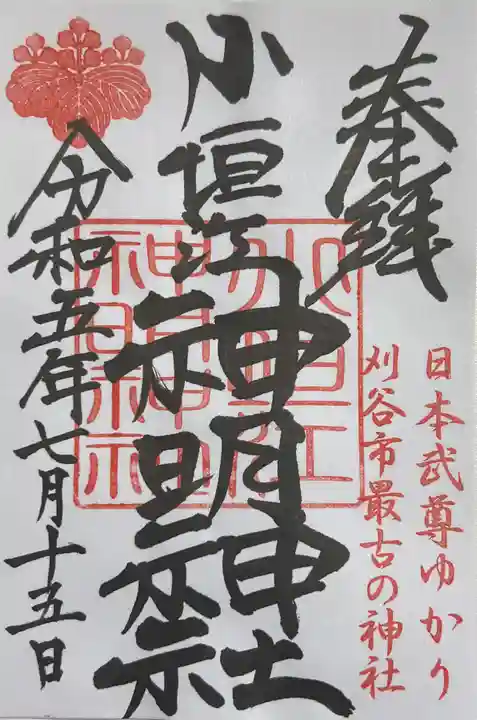 奉拝
日本武尊ゆかり
刈谷市最古の神社
小垣江神明神社
令和五年七月十五日